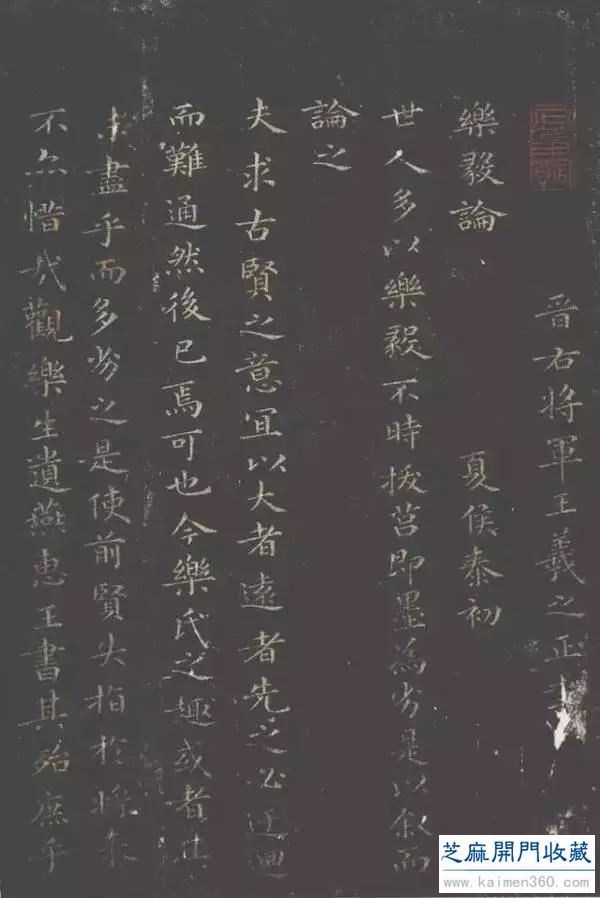 晋右將軍王羲之正書
樂毅論 夏侯泰初
世人多以樂毅不時拔莒即墨為劣是以叙而
論之
夫求古賢之意宜以大者遠者先之必迂迴
而難通然後已焉可也今樂氏之趣或者其
未盡乎而多劣之是使前賢失指於將來
不亦惜哉觀樂生遺燕惠王書其殆庶乎
芝麻開門收藏
www.kaimen360.com